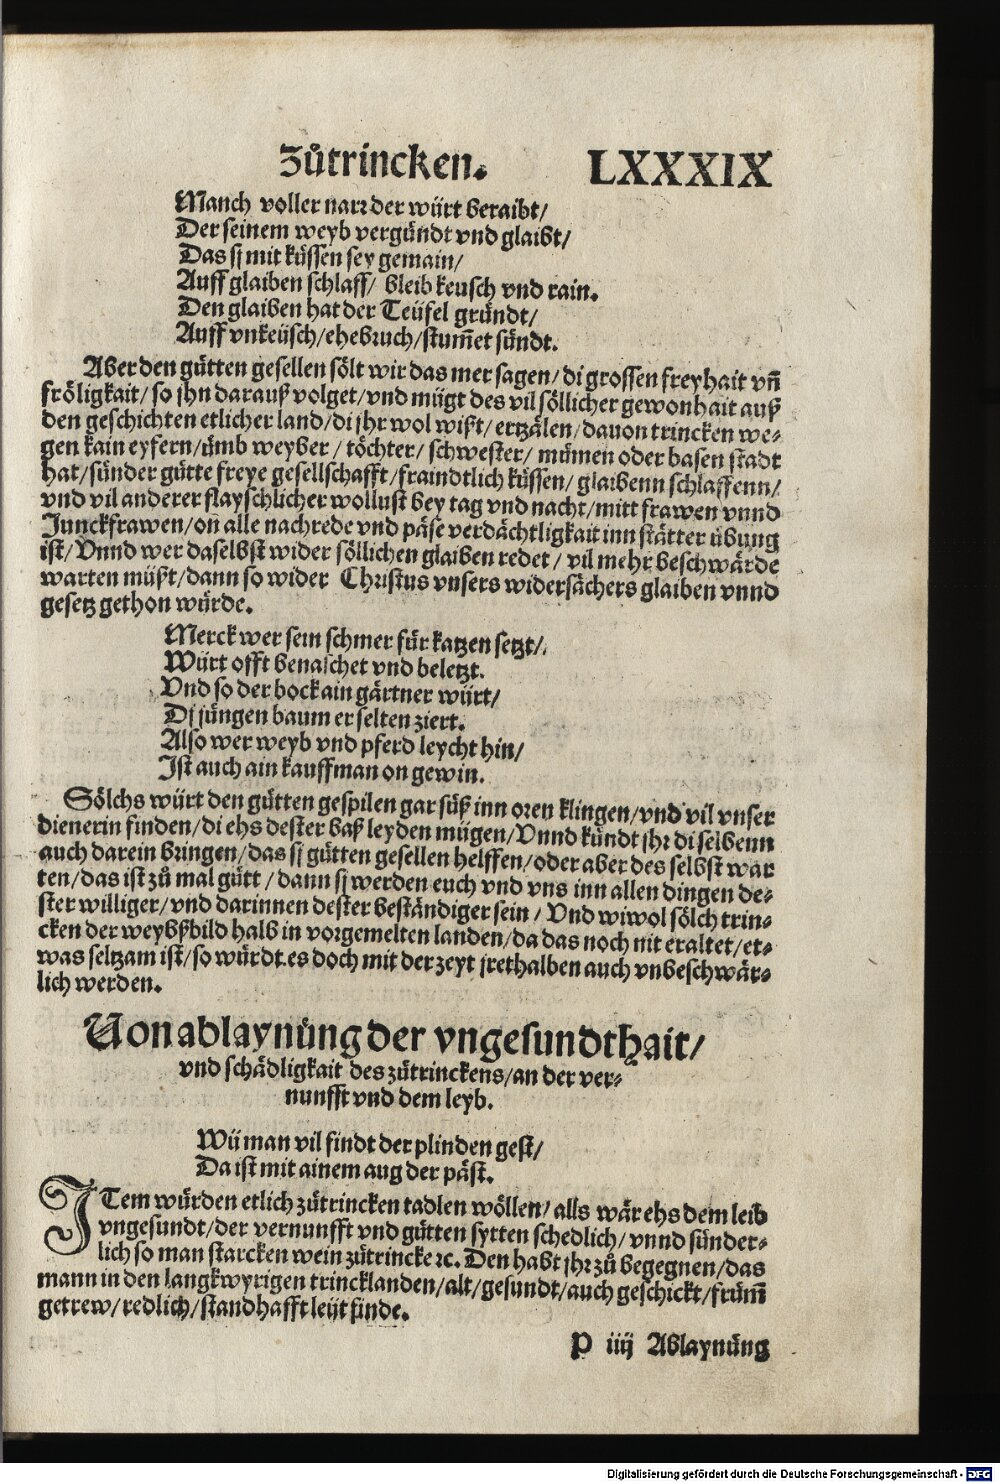 Zůtrincken. LXXXIX
Manch voller narr der würt beraibt/
Der seinem weyb vergündt vnd glaibt/
Das sj mit küssen sey gemain/
Auff glaiben schlaff/ bleib keusch vnd rain.
Den glaiben hat der Teüfel gründt/
Auff vnkeüsch/ehebruch/stum̃et sündt.
Aber den gůtten gesellen sölt wir das mer sagen/di grossen freyhait vñ
fröligkait/so jhn darauß volget/vnd mügt des vil söllicher gewonhait auß
den geschichten etlicher land/di jhr wol wißt/ertzälen/dauon trincken we⸗
gen kain eyfern/ümb weyber/töchter/schwester/mümen oder basen stadt
hat/sünder gůtte freye gesellschafft/fraindtlich küssen/glaibenn schlaffenn/
vnd vil anderer flayschlicher wollust bey tag vnd nacht/mitt frawen vnnd
Junckfrawen/on alle nachrede vnd päse verdächtligkait inn stätter übung
ist/Vnnd wer daselbst wider söllichen glaiben redet/vil mehr beschwärde
warten müßt/dann so wider Christus vnsers widersächers glaiben vnnd
gesetz gethon würde.
Merck wer sein schmer für katzen setzt/
Würt offt benaschet vnd beletzt.
Vnd so der bock ain gärtner würt/
Dj jüngen baum er selten ziert.
Also wer weyb vnd pferd leycht hin/
Jst auch ain kauffman on gewin.
Sölchs würt den gůtten gespilen gar süß inn oren klingen/vnd vil vnser
dienerin finden/di ehs dester baß leyden mügen/Vnnd kündt jhr di selbenn
auch darein bringen/das sj gůtten gesellen helffen/oder aber des selbst war
ten/das ist zů mal gůtt/dann sj werden euch vnd vns inn allen dingen de⸗
ster williger/vnd darinnen dester beständiger sein/Vnd wiwol sölch trin⸗
cken der weybßbild halb in vorgemelten landen/da das noch nit eraltet/et⸗
was seltzam ist/so würdt es doch mit der zeyt jrethalben auch vnbeschwär⸗
lich werden.
Von ablaynüng der vngesundthait/
vnd schädligkait des zůtrinckens/an der ver⸗
nunfft vnd dem leyb.
Wü man vil findt der plinden gest/
Da ist mit ainem aug der päst.
JTem würden etlich zůtrincken tadlen wöllen/alls wär ehs dem leib
vngesundt/der vernunfft vnd gůtten sytten schedlich/vnnd sünder⸗
lich so man starcken wein zůtrincke ꝛc. Den habt jhr zů begegnen/das
mann in den langkwyrigen trincklanden/alt/gesundt/auch geschickt/frům̃
getrew/redlich/standhafft leüt finde.
P iiij Ablaynüng
Digitalisierung gefördert durch die Deutsche Forschungsgemeinschaft - DFG